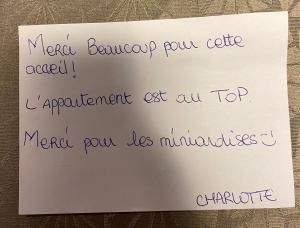 Merci Beaucoup pour cette
accueil!
L'appartement est au TOP.
Merci pour les miniardises :)
CHARLOTTE